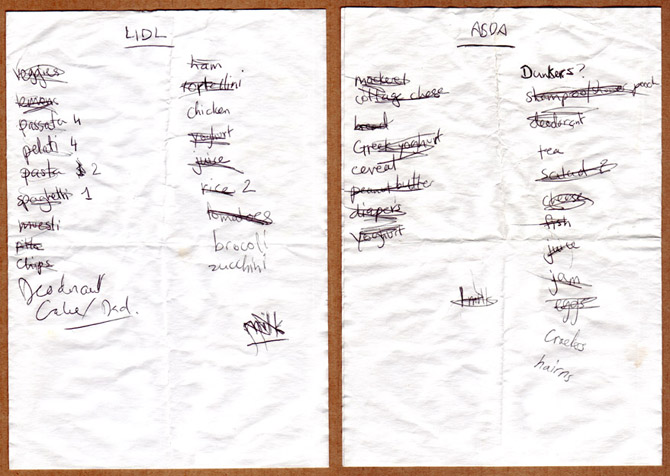 LIDL
veggies
lemon
passata 4
pelati 4
pasta 2
spaghetti 1
muesli
chips
Deodorant
Cake/Dad.
ham
chicken
yoghurt
juice
rice 2
tomatoes
brocoli
zucchini
milk
ASDA
mackerel
cottage chese
bread
Greek yoghurt
cereal
peanut butter
diapers
yoghurt
milk
Dunkers?
deodorant
tea
salad
cheese
fish
juice
jam
eggs